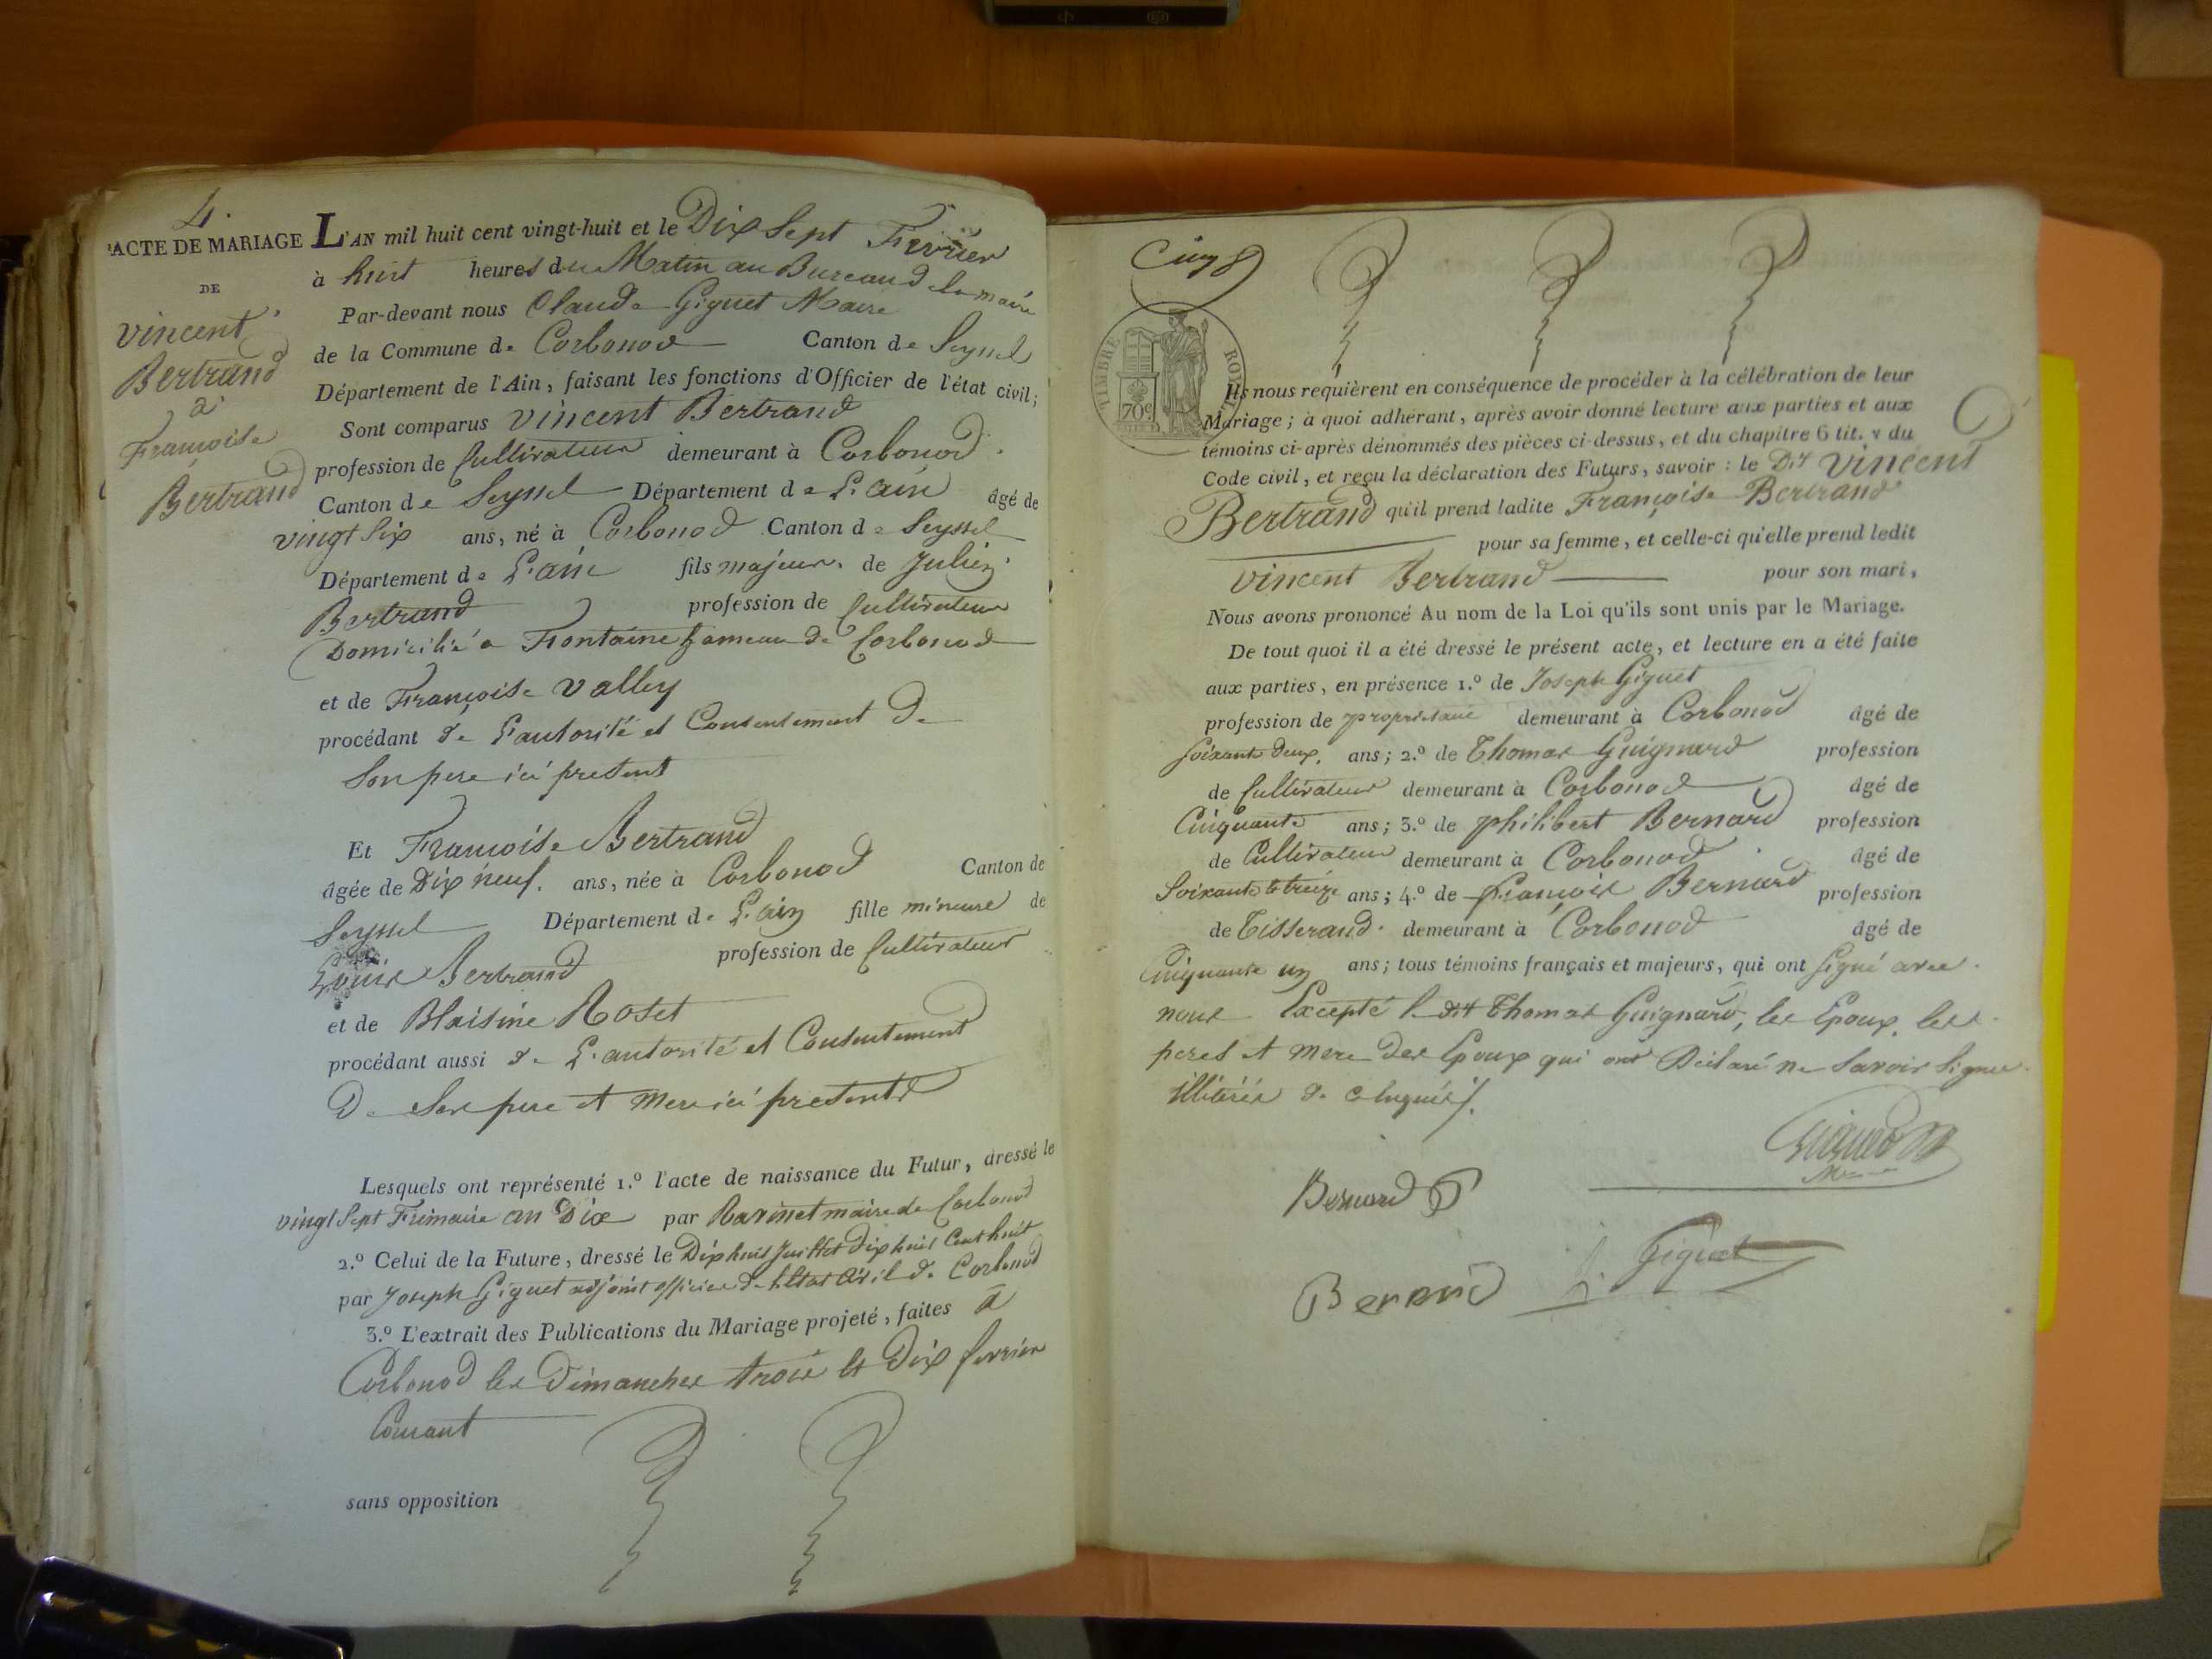 4.
ACTE DE MARIAGE
DE
vincent
Bertrand
a
Françoise
Bertrand
L'AN mil huit cent vingt-huit et le Dix Sept Fevrier
à huit heures du Matin au Bureau d la mairie
Par-devant nous Claude Giguet Maire
de la Commune de Corbonod Canton de Seyssel
Département de l'Ain, faisant les fonctions d'Officier de l'état civil;
Sont comparus vincent Bertrand
profession de Cultivateur demeurant à Corbonod
Canton de Seyssel Département de L'ain âgé de
vingt Six ans, né à Corbonod Canton de Seyssel
Département de L'ain fils majeur de Julien
Bertrand profession de Cultivateur
Domicilié a Fontaine hameau de Corbonod
et de Françoise valley
procédant de L'autorité et Consentement de
Son pere ici present
Et Françoise Bertrand
âgée de Dix neuf. ans, née à Corbonod Canton de
Seyssel Département de L'ain fille mineure de
Louis Bertrand profession de Cultivateur
et de Blaisine Roset
procédant aussi de L'autorité et Consentement
De Son pere et Mere ici presents
Lesquels ont représenté 1.º l'acte de naissance du Futur, dressé le
vingt Sept Frimaire an Dix par Ravinet maire de Corbonod
2.º Celui de la Future, dressé le Dix huit Juillet Dix huit Cent huit
par Joseph Giguet adjoint officier de l'Etat Civil de Corbonod
3.º L'extrait des Publications du Mariage projeté, faites à
Corbonod les Dimanches trois et Dix fevrier
Courant
sans opposition
Cinq
TIMBRE ROYAL
70c
Ils nous requièrent en conséquence de procéder à la célébration de leur
Mariage; à quoi adhérant, après avoir donné lecture aux parties et aux
témoins ci-après dénommés des pièces ci-dessus, et du chapitre 6 tit. v du
Code civil, et reçu la déclaration des Futurs, savoir: le Dit vincent
Bertrand qu'il prend ladite Françoise Bertrand
pour sa femme, et celle-ci qu'elle prend ledit
vincent Bertrand pour son mari,
Nous avons prononcé Au nom de la Loi qu'ils sont unis par le Mariage.
De tout quoi il a été dressé le présent acte, et lecture en a été faite
aux parties, en présence 1.º de Joseph Giguet
profession de proprietaire demeurant à Corbonod âgé de
Soixante Deux. ans; 2.º de Thomas Guignard profession
de Cultivateur demeurant à Corbonod âgé de
Cinquante ans; 3.º de philibert Bernard profession
de Cultivateur demeurant à Corbonod âgé de
Soixante et treize ans; 4.º de François Bernard profession
de Tisserand. demeurant à Corbonod âgé de
Cinquante un ans; tous témoins français et majeurs, qui ont Signé avec
nous Excepté le dit Thomas Guignard, les Epoux, les
peres et Mere des Epoux qui ont Déclaré ne Savoir Signer
illitérés de
Bernard
Giguet
Berard